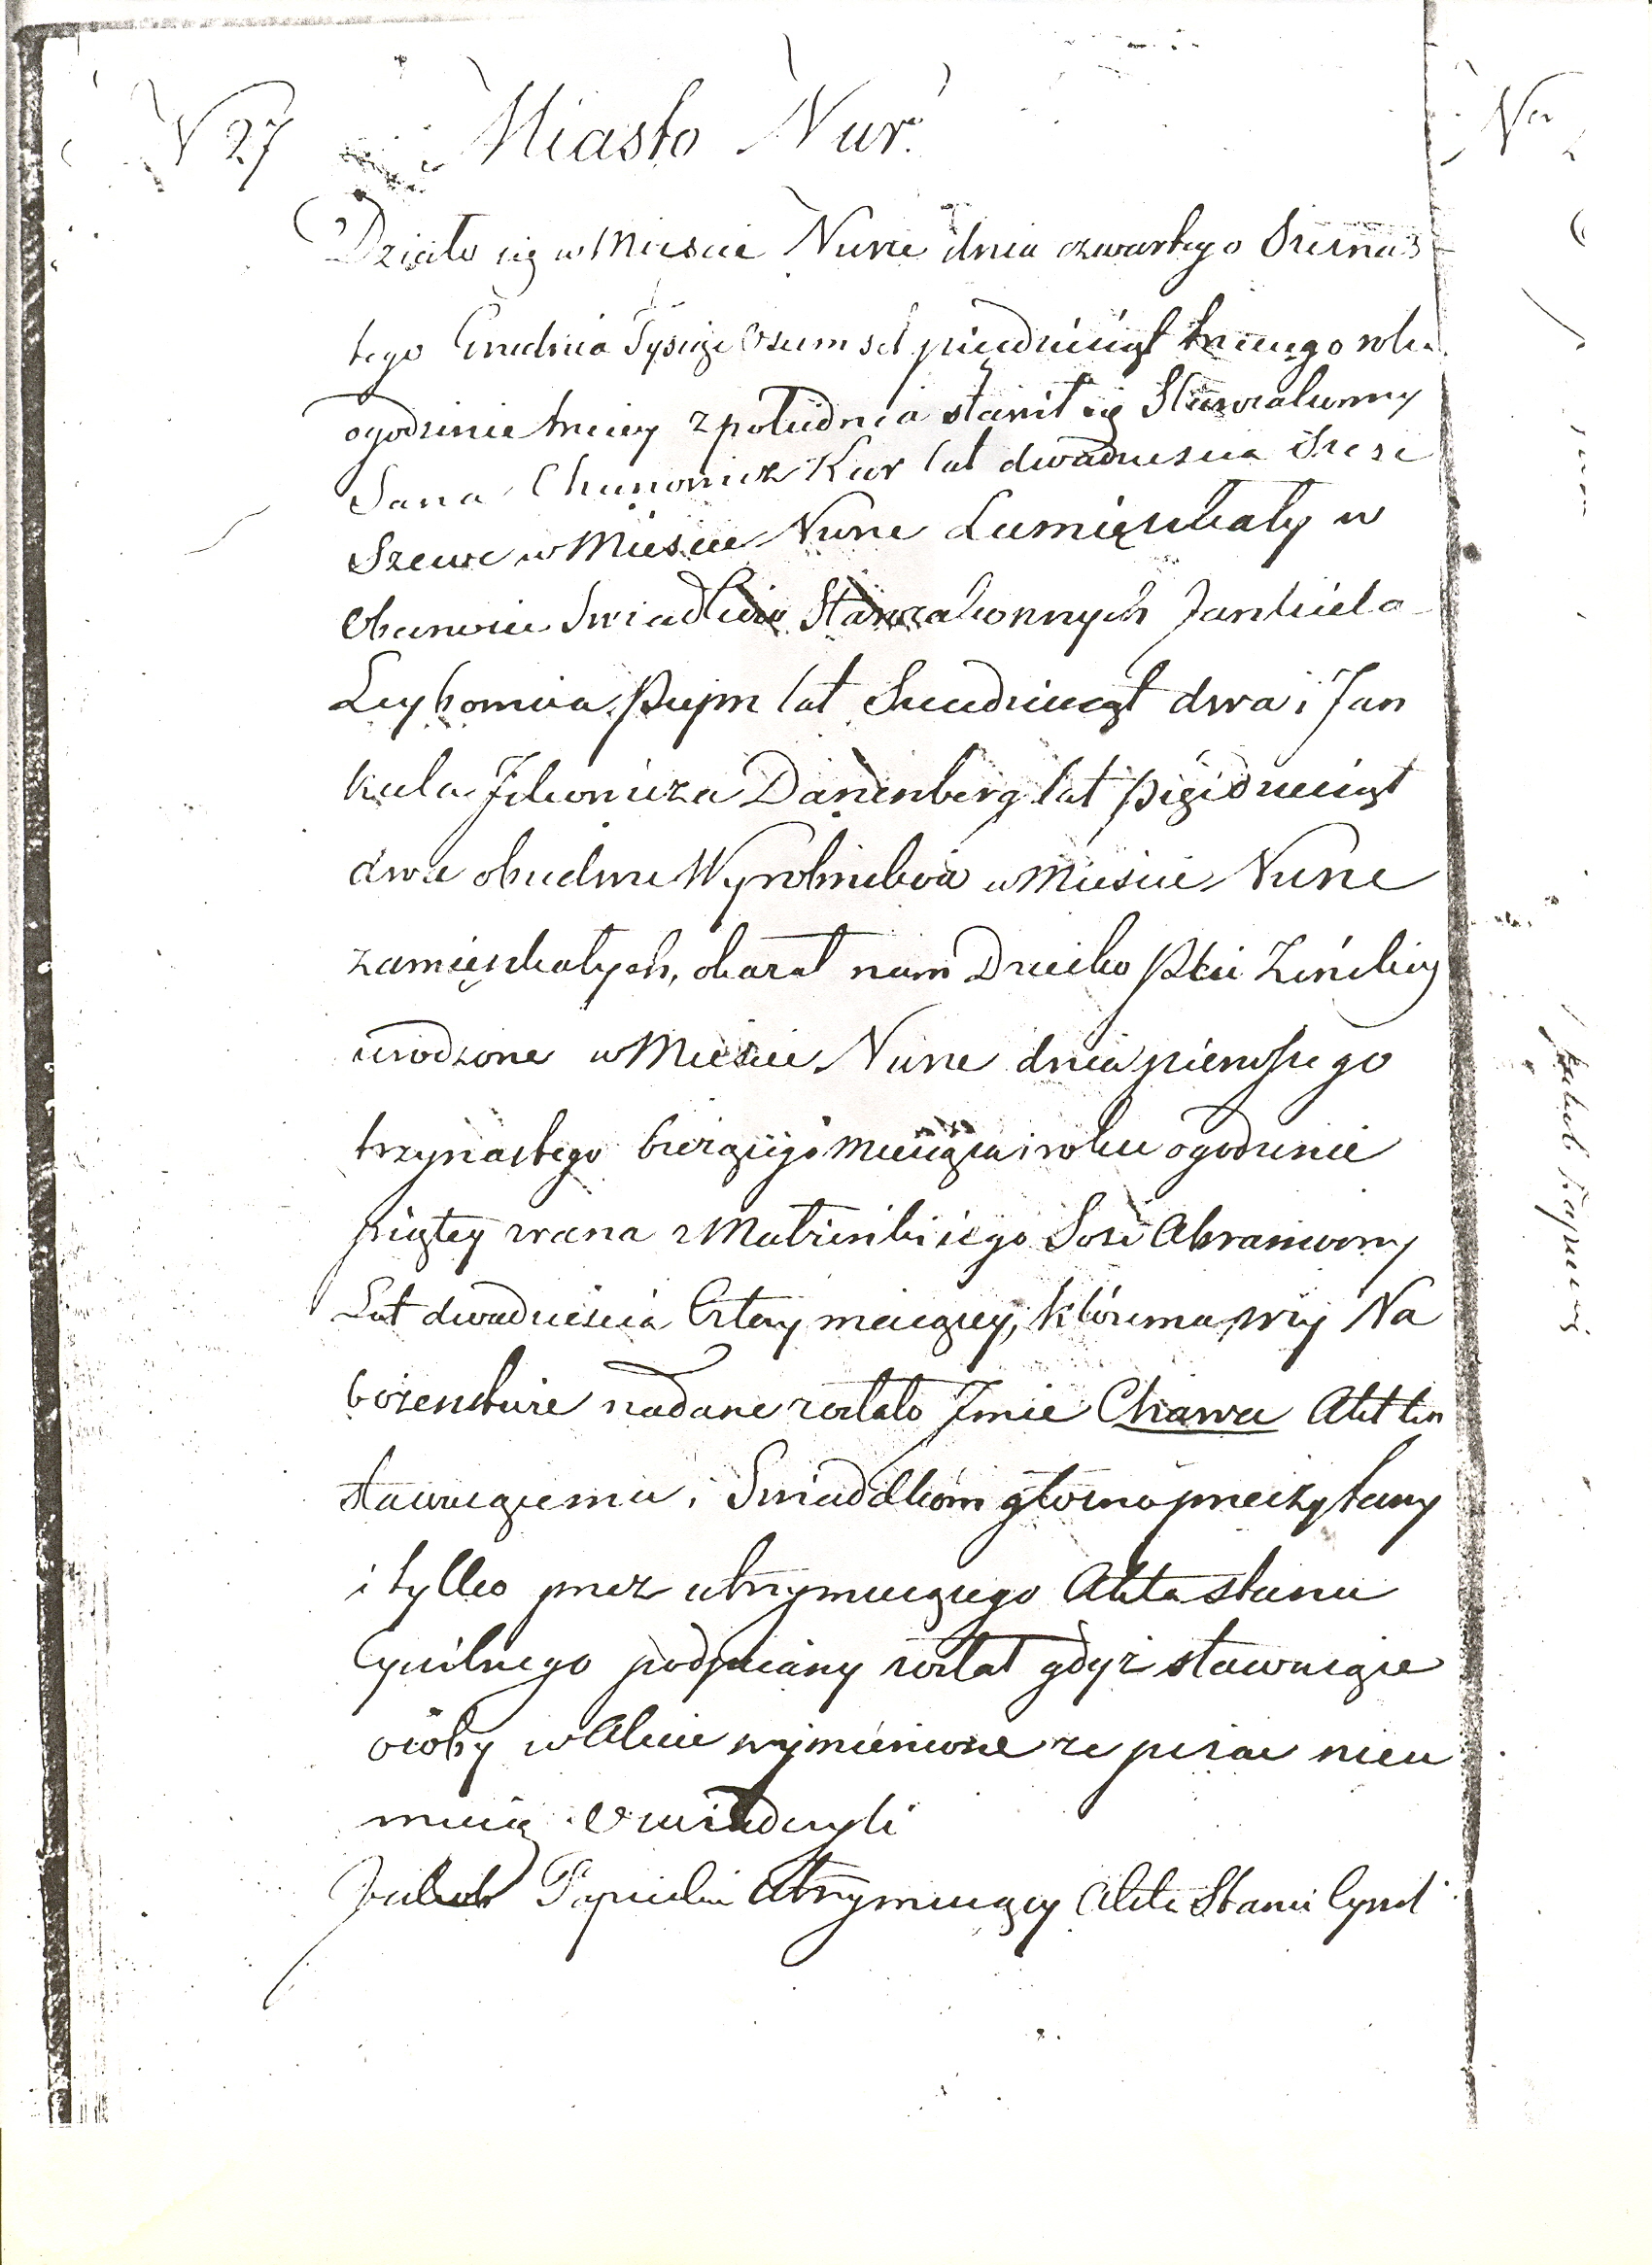 N 27 Miasto Nur.
Działo się w Miescie Nurze dnia czwartego Szesnas
tego Grudnia Tysiąc Osiem set pięcdziesiąt trzeciego roku
o godzinie trzeciey z południa stawił się Starozakonny
Chunowicz Kur lat dwadziescia Szesc
Szewc w Miescie Nurze Zamięszkały w
Obecnosci Swiadków Starozakonnych Jankiela
Leybowicza lat dwa i Jan
kiela Danenberg lat pięcdziesiąt
dwa obudwu Wyrobników w Miescie Nurze
zamięszkałych, okazał nam Dziecko Płci Zeńskiey
urodzone w Miescie Nurze dnia pierwszego
trzynastego bierzącego Miesiąca i roku o godzinie
piątey zrana z Małżenki iego Sosi Abramowny
Lat dwadziescia Cztery maiącey, któremu przy Na
bożenstwie nadane zostało Imie Chawa Akt ten
stawaiącemu i Swiadkom głosno przeczytany
i tylko przez utrzymuiącego Akta stanu
Cywilnego podpisany został gdyż stawaiące
osoby w Akcie wymienione ze pisac nieu
mieią Oswiadczyli
Jakub Utrzymuiący Akta Stanu Cywil
Nu